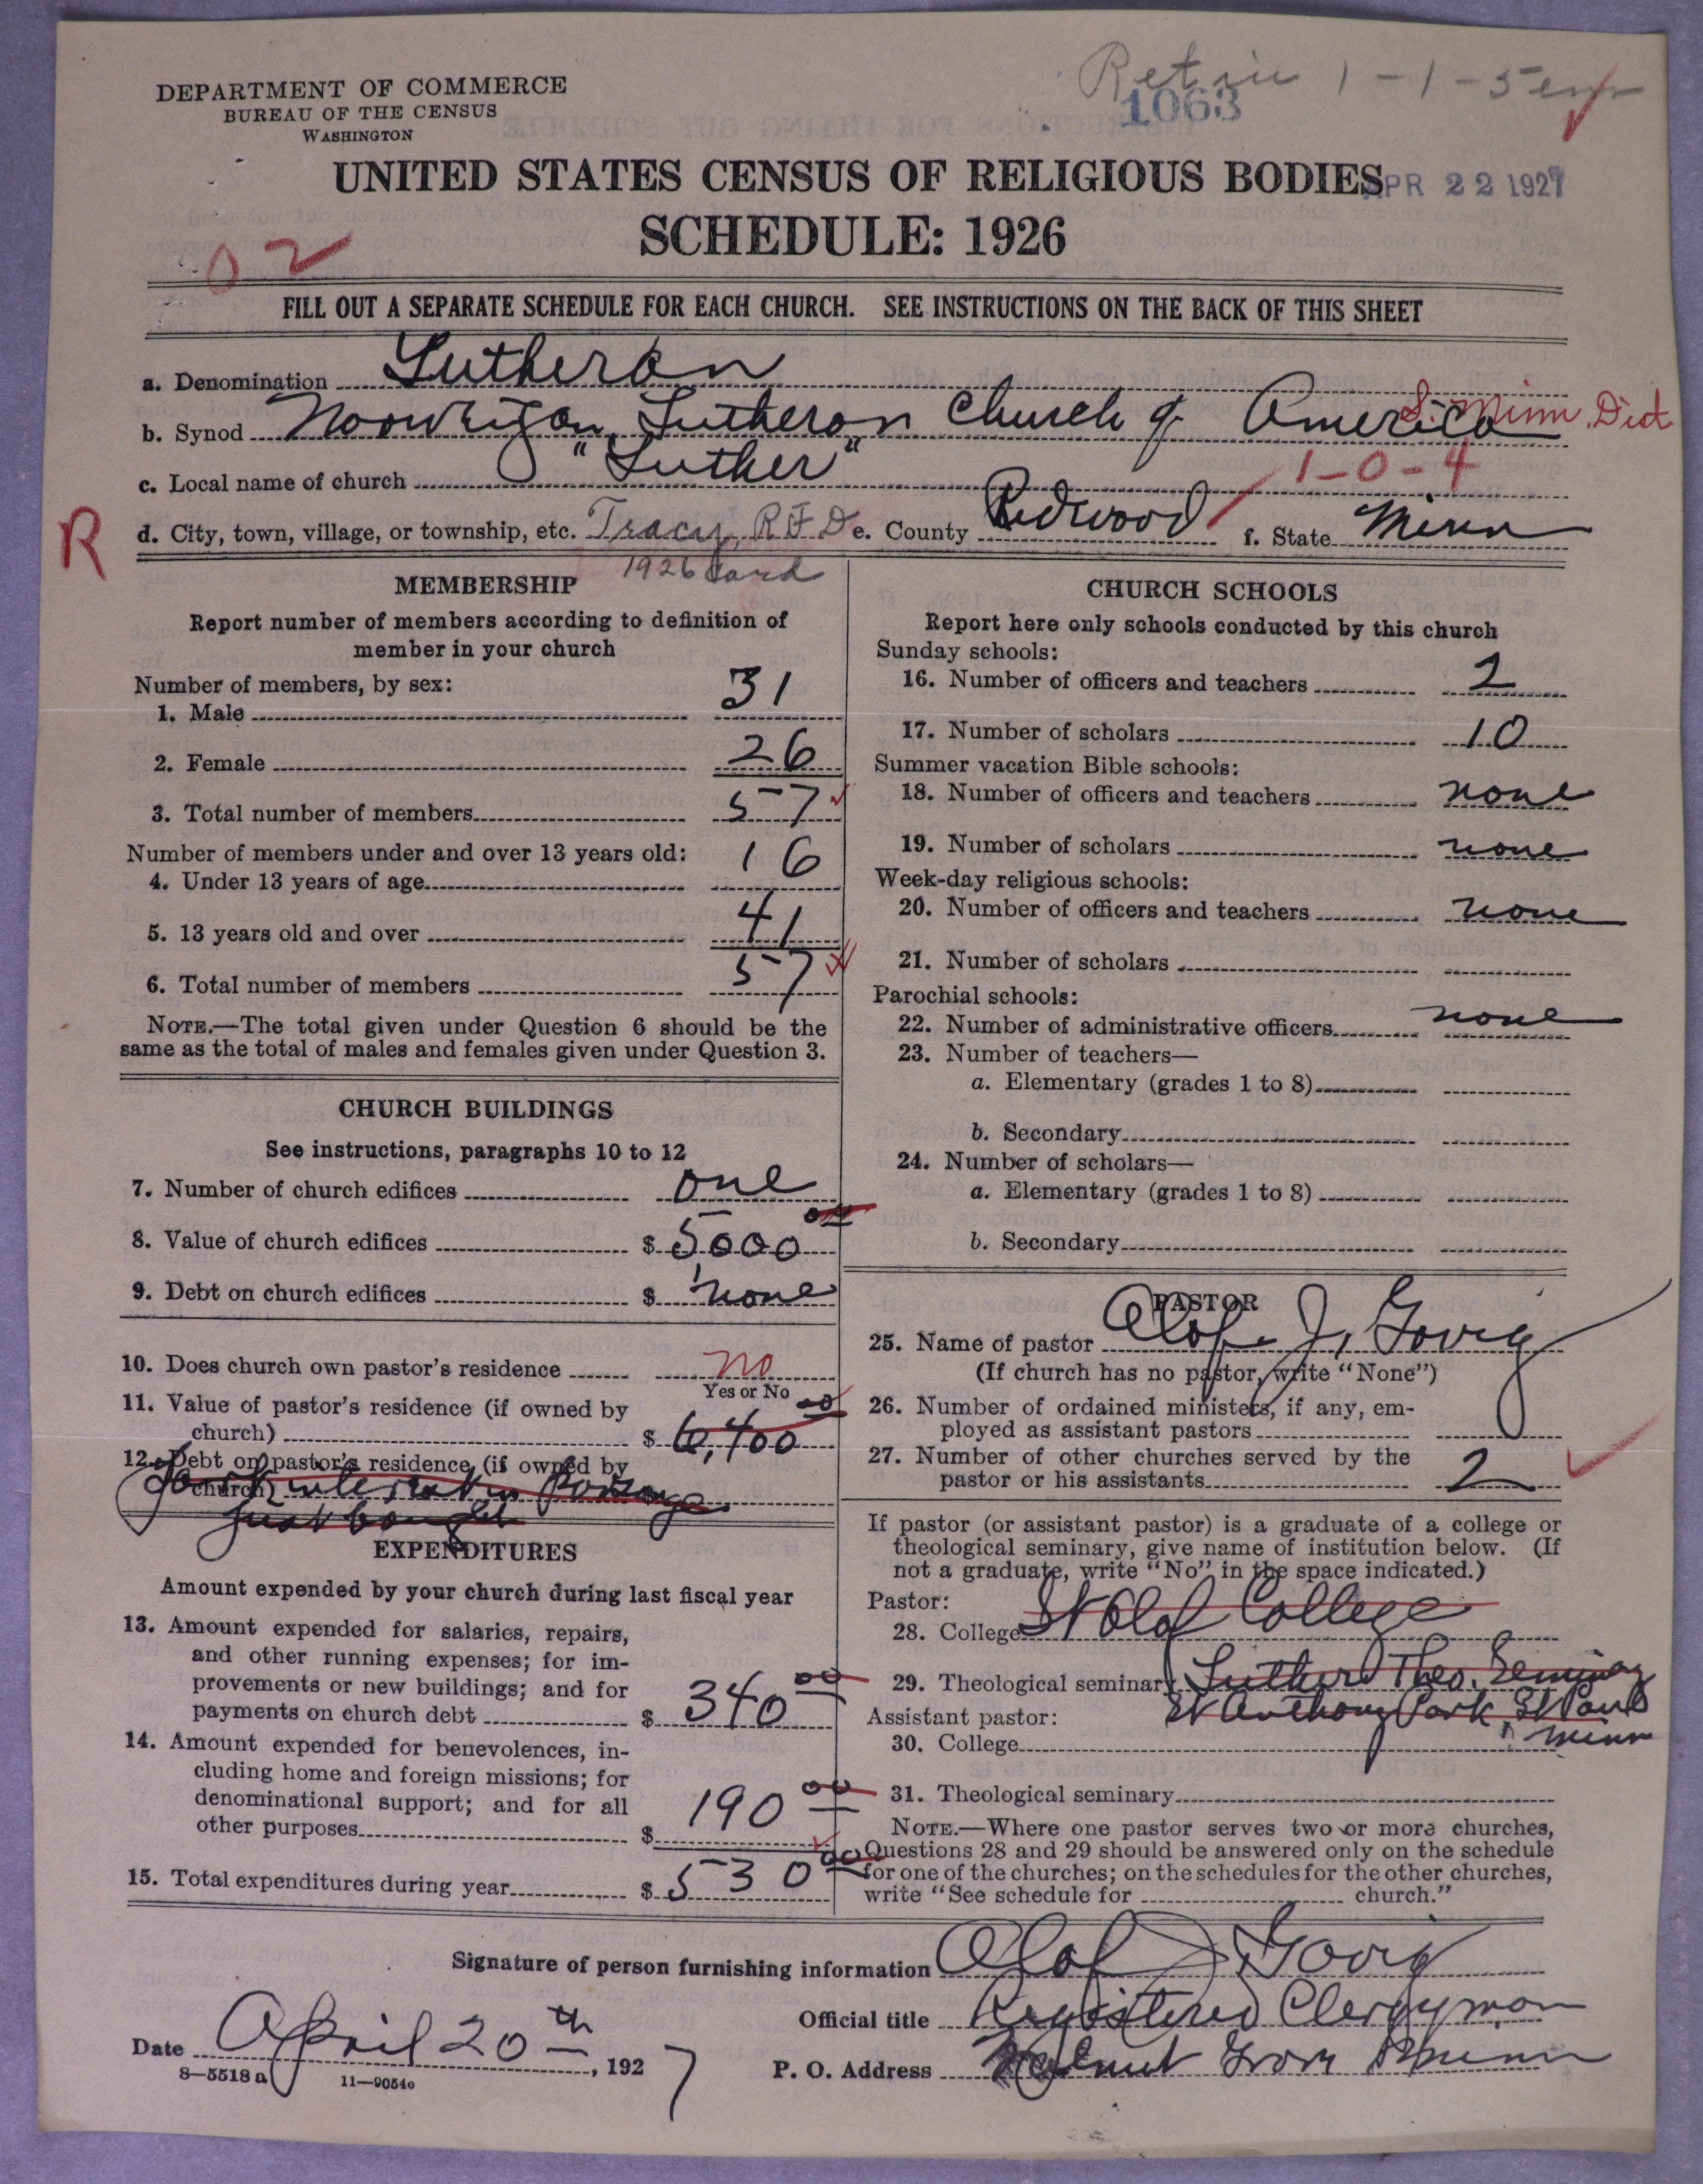 DEPARTMENT OF COMMERCE
BUREAU OF THE CENSUS
WASHINGTON
1063
UNITED STATES CENSUS OF RELIGIOUS BODIES
APR 22 1927
SCHEDULE: 1926
02
FILL OUT A SEPARATE SCHEDULE FOR EACH CHURCH. SEE INSTRUCTIONS ON THE BACK OF THIS SHEET
a. Denomination Lutheran
b. Synod Norwegian Lutheran Church of America S. Minn. Dist
c. Local name of church "Luther" 1-0-4
R d. City, town, village, or township, etc. Tracy, RFD e. County Redwood f. State Minn
1926 Card
MEMBERSHIP
Report number of members according to definition of
member in your church
Number of members, by sex:
1. Male 31
2. Female 26
3. Total number of members 57
Number of members under and over 13 years old:
4. Under 13 years of age 16
5. 13 years old and over 41
6. Total number of members 57
NOTE.—The total given under Question 6 should be the
same as the total of males and females given under Question 3.
CHURCH BUILDINGS
See instructions, paragraphs 10 to 12
7. Number of church edifices one
8. Value of church edifices $ 5000 00
9. Debt on church edifices $ none
10. Does church own pastor's residence no
Yes or No
11. Value of pastor's residence (if owned by
church) $ 6,400 00
12. Debt on pastor's residence (if owned by
church)
just bought
EXPENDITURES
Amount expended by your church during last fiscal year
13. Amount expended for salaries, repairs,
and other running expenses; for im-
provements or new buildings; and for
payments on church debt $ 340 00
14. Amount expended for benevolences, in-
cluding home and foreign missions; for
denominational support; and for all
other purposes $ 190 00
15. Total expenditures during year $ 530 00
CHURCH SCHOOLS
Report here only schools conducted by this church
Sunday schools:
16. Number of officers and teachers 2
17. Number of scholars 10
Summer vacation Bible schools:
18. Number of officers and teachers none
19. Number of scholars none
Week-day religious schools:
20. Number of officers and teachers none
21. Number of scholars
Parochial schools:
22. Number of administrative officers none
23. Number of teachers—
a. Elementary (grades 1 to 8)
b. Secondary
24. Number of scholars—
a. Elementary (grades 1 to 8)
b. Secondary
PASTOR
25. Name of pastor Olof J. Govig
(If church has no pastor, write "None")
26. Number of ordained ministers, if any, em-
ployed as assistant pastors
27. Number of other churches served by the
pastor or his assistants 2
If pastor (or assistant pastor) is a graduate of a college or
theological seminary, give name of institution below. (If
not a graduate, write "No" in the space indicated.)
Pastor:
28. College St Olaf College
29. Theological seminary Luther Theo. Seminary
St Anthony Park, St Paul
Minn
Assistant pastor:
30. College
31. Theological seminary
NOTE.—Where one pastor serves two or more churches,
Questions 28 and 29 should be answered only on the schedule
for one of the churches; on the schedules for the other churches,
write "See schedule for church."
Signature of person furnishing information Olof J Govig
Official title Registered Clergyman
Date April 20th, 1927
P. O. Address Walnut Grove Minn
8—5518 a 11—9054